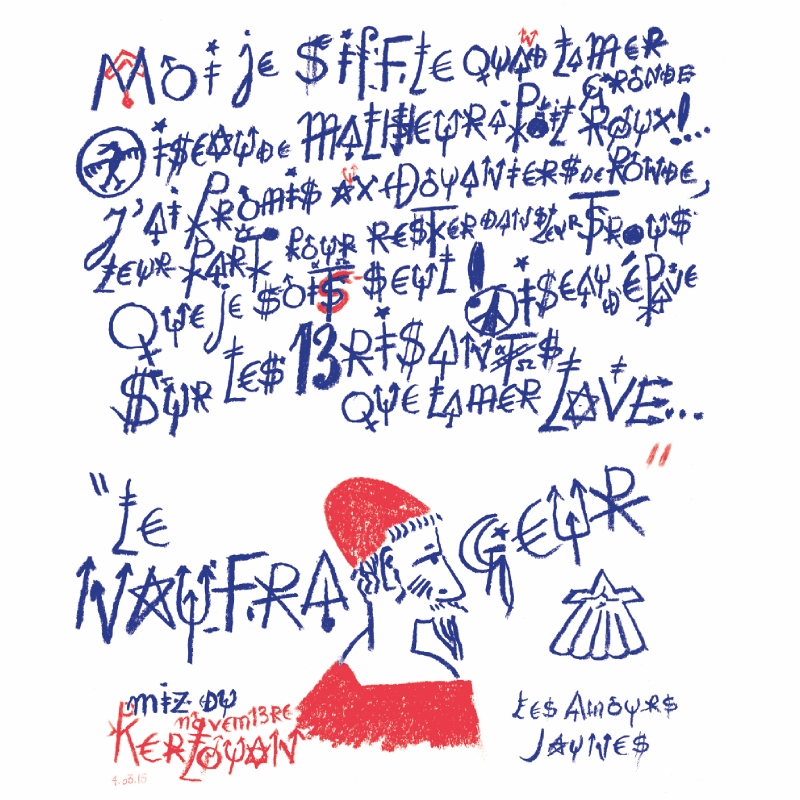 Moi je siffle quand la mer gronde
Oiseau de malheur à poil roux!...
J'ai promis aux douaniers de ronde,
Leur part pour rester dans leur trous
Que je sois seul! oiseau d'épave
Sur les brisants
que la mer lave...
"Le
Naufrageur"
miz du
novembre
Kerlouan
Les Amours
Jaunes